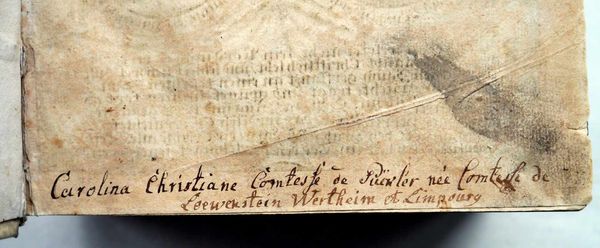 Carolina Christiane Comtesse de Pückler née Comtesse de
Loewenstein Wertheim et Limpourg